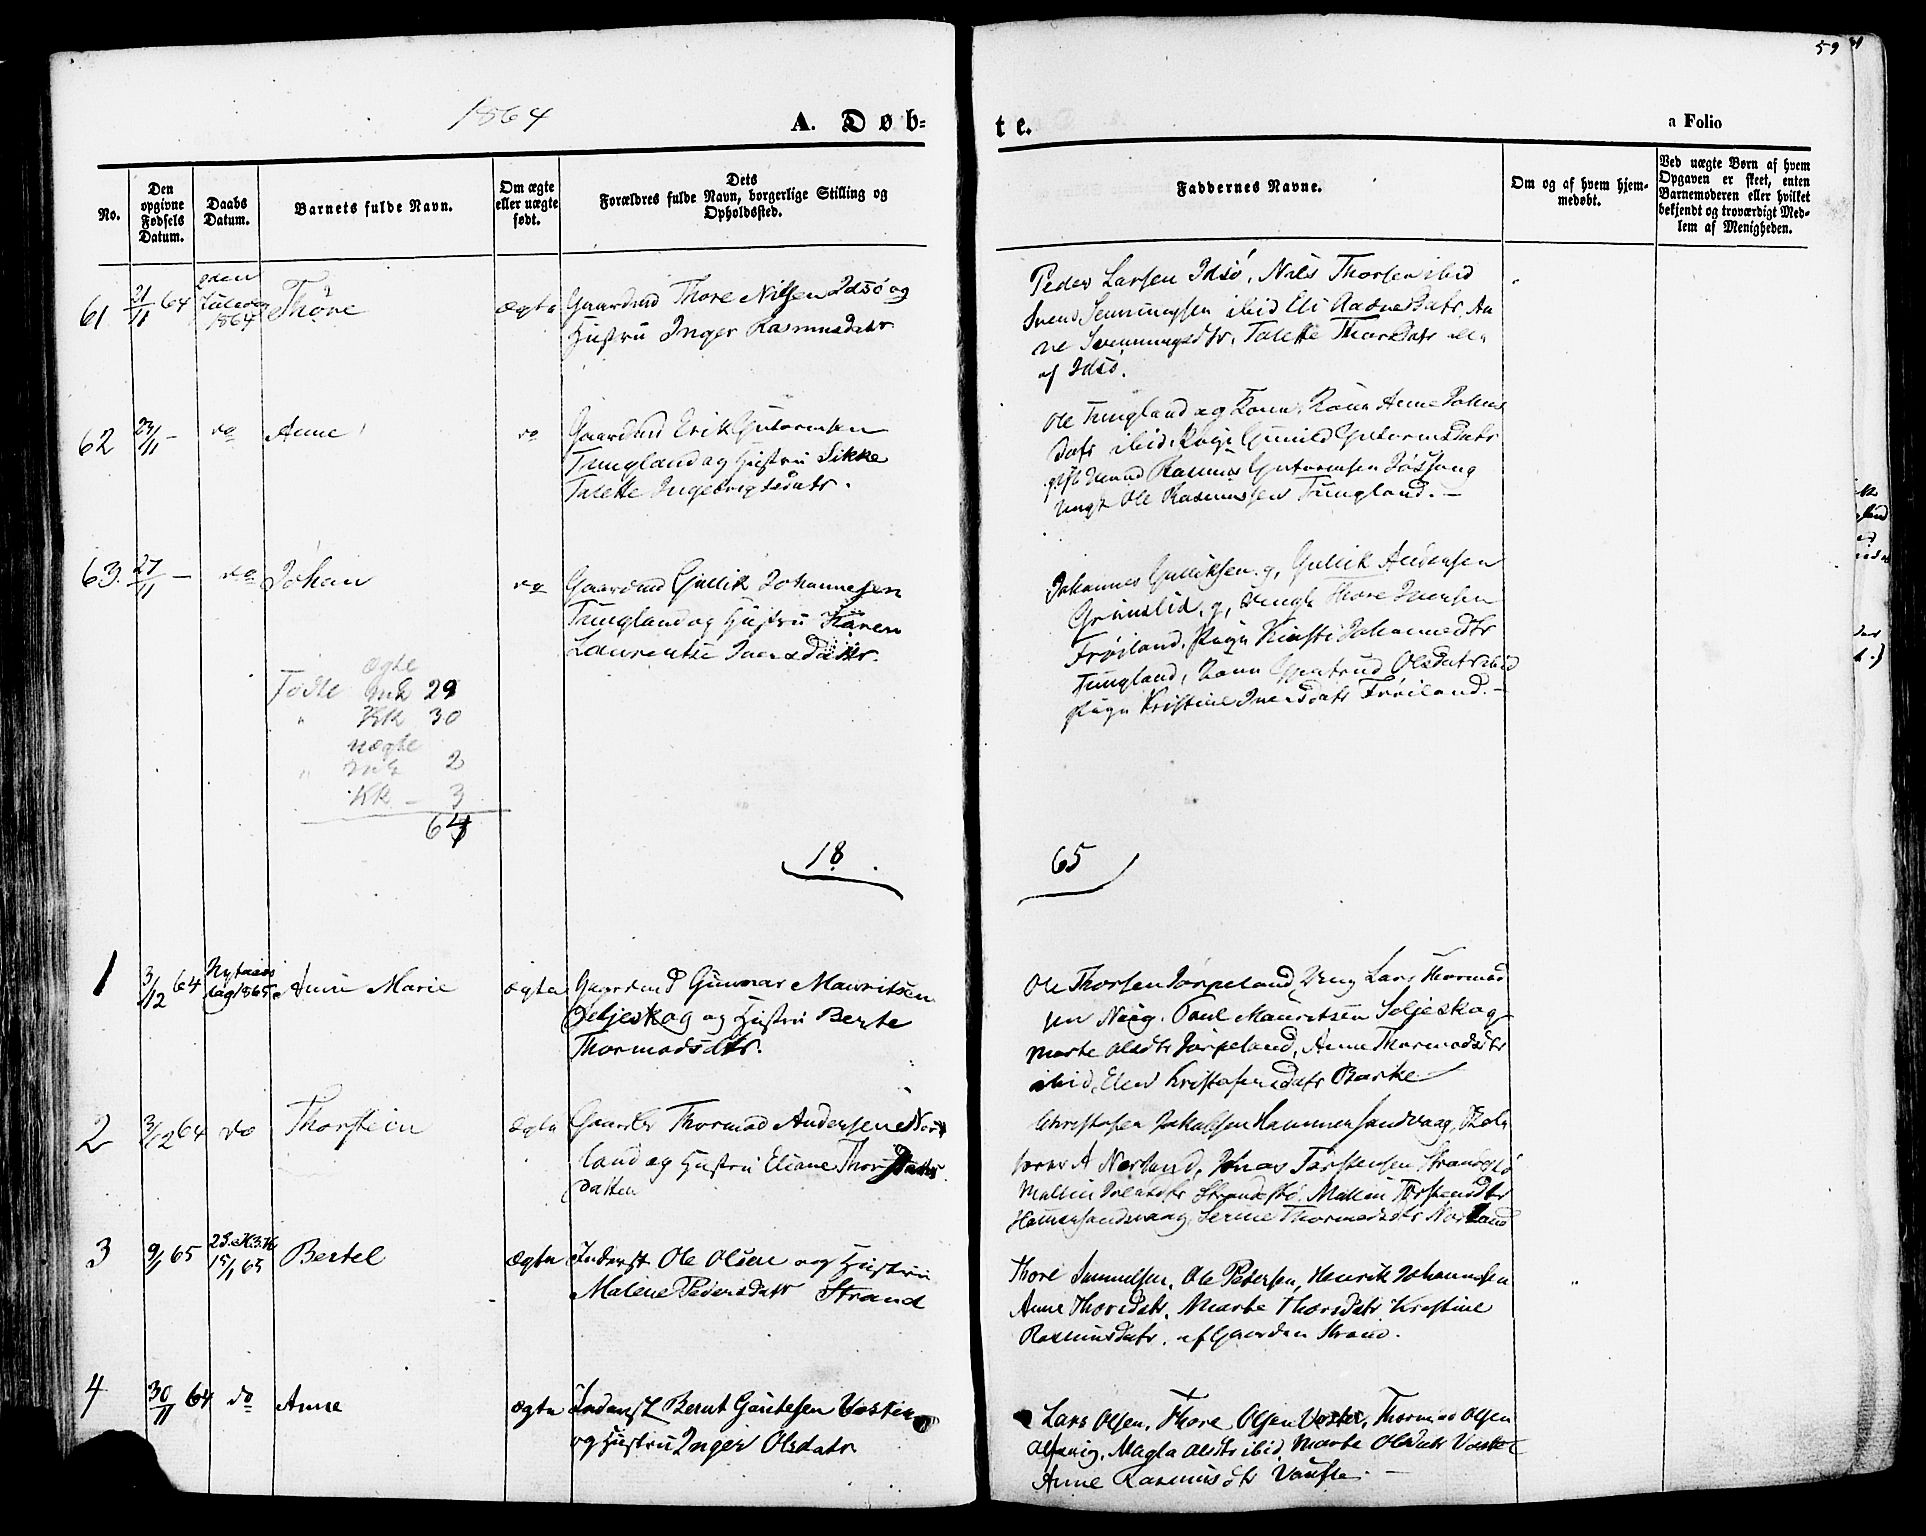 59
1864
A. Døb-
te.
a Folio
No.
Den opgivne Fødsels Datum.
Daabs Datum.
Barnets fulde Navn.
Om ægte eller uægte født.
Dets Forældres fulde Navn, borgerlige Stilling og Opholdssted.
Faddernes Navne.
Om og af hvem hjem-
medøbt.
Ved uægte Børn af hvem
Opgaven er skeet, enten
Barnemoderen eller hvilket
bekjendt og troværdigt Med-
lem af Menigheden.
61 21/11 64 2den Juledag 1864 Thore ægte Gaardmd Thore Nilsen Idsø og
Hustru Inger Rasmusdatr
Peder Larsen Idsø, Nils Thorsen ibid
Svend Svenningsen ibid Eli Aadnedatr, An
ne Svenningsdtr, Talette Thorsdatr alle
af Idsø.
62 23/11 – do Anne do Gaardmd Erik Gutormsen
Tungland og Hustru Sikke
Talette Ingebrigtsdatr.
Ole Tungland og Kone, Kone Anne Johns
datr ibid, Pige Gunild Gutormsdatr
Rasmus Gutormsen Jøssang
Ungk Ole Rasmussen Tungland. –
63. 27/11 – do Johan do Gaardmd Gullik Johannesen
Tungland og Hustru Karen
Laurentse Iversdatr.
Johannes Gulliksen g, Gullik Andersen
Grønslid, g, Ungk Thore Iversen
Frøiland, Pige Kirsti Johannesdtr
Tungland, Kone Gjertrud Olsdatr ibid
Pige Kristine Iversdatr Frøiland. –
ægte
Fødte Mk 29
" Kk 30
uægte
" Mk 2
Kk – 3
64
18
65
1 3/12 64 Nytaars dag 1865 Anne Marie ægte Gaardmd Gunnar Mauritsen
Seljeskog og Hustru Berte
Thormodsdatr.
Ole Thorsen Jørpeland, Ung Lars Thormod
sen Nag. Poul Mauritsen Seljeskog
Marte Olsdtr Jørpeland, Anne Thormodsdtr
ibid, Elen Kristofersdatr Barke
2 3/12 64 do Thorstein ægte Gaardbr Thormod Andersen Nor
land og Hustru Eliane Thors
datter
Christofer Jakobsen Hammersandvaag,
A Norland, Jonas Torstensen Strandstø
Mallin Strandstø, Mallin Torstensdtr
Hamersandvaag, Serine Thormodsdtr Norland
3 9/1 65 2S.e.H.3.K 15/1 65 Bertel ægte Inderst Ole Olsen og Hustru
Malene Pedersdatr Strand
Thore Samuelsen, Ole Pedersen, Henrik Johannesen
Anne Thorsdatr, Marte Thorsdatr Kristine
Rasmusdatr, af Gaarden Strand.
4 30/11 64 do Anne ægte Inderst Bernt Gautesen Voster
og Hustru Inger Olsdatr
Lars Olsen, Thore Olsen Voster, Thormod Olsen
Alsvig, Magla Olsdtr ibid, Marte Olsdatr Voster
Anne Rasmusdtr –